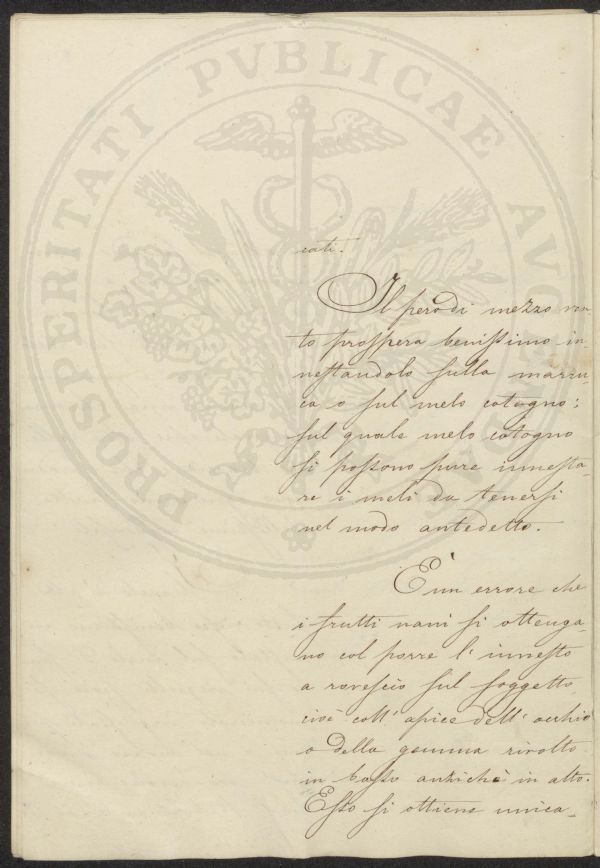 PROSPERITATI PVBLICAE
cati.
Il pero di mezzo ven¬
to prospera benissimo in¬
nestandolo sulla marru¬
ca o sul melo cotogno;
sul quale melo cotogno
si possono pure innesta¬
re i meli da tenersi
nel modo antedetto.
È un errore che
i frutti nani si ottenga¬
no col porre l'innesto
a rovescio sul soggetto,
cioè coll'apice dell'occhio
o della gemma rivolto
in basso anzichè in alto.
Esso si ottiene unica¬